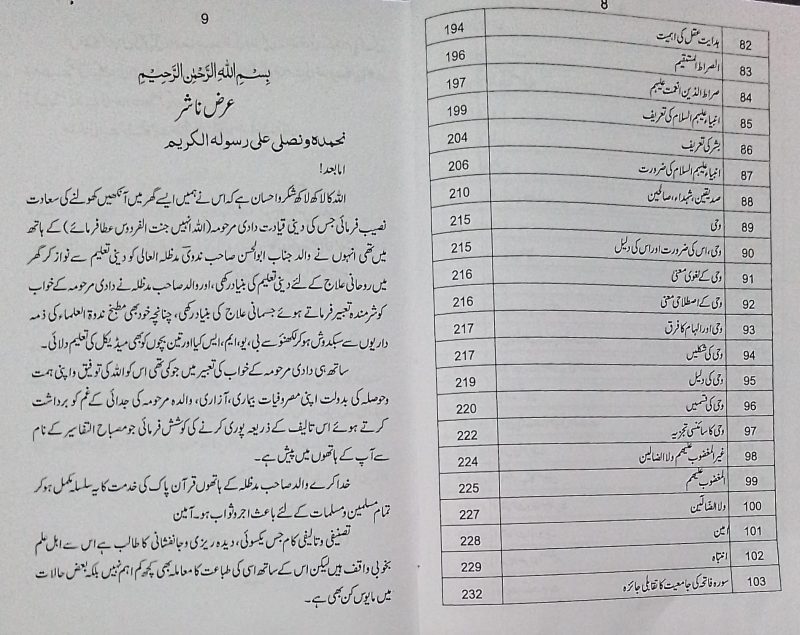 8
82 ہدایت عقل کی اہمیت 194
83 الصراط المستقیم 196
84 صراط الذین انعمت علیہم 197
85 انبیاء علیہم السلام کی تعریف 199
86 بشر کی تعریف 204
87 انبیاء علیہم السلام کی ضرورت 206
88 صدیقین، شہداء، صالحین 210
89 وحی 215
90 وحی، اس کی ضرورت اور اس کی دلیل 215
91 وحی کے لغوی معنی 216
92 وحی کے اصطلاحی معنی 216
93 وحی اور الہام کا فرق 217
94 وحی کی شکلیں 217
95 وحی کی دلیل 219
96 وحی کی قسمیں 220
97 وحی کا سائنسی تجزیہ 222
98 غیر المغضوب علیہم ولا الضالین 224
99 المغضوب علیہم 225
100 ولا الضّالّین 227
101 امین 228
102 انتباہ 229
103 سورہ فاتحہ کی جامعیت کا تقابلی جائزہ 232
9
بِسْمِ اللهِ الرَّحْمٰنِ الرَّحِيْمِ
عرض ناشر
نحمدہ و نصلی علی رسولہ الکریم
اما بعد!
اللہ کا لاکھ لاکھ شکر و احسان ہے کہ اس نے ہمیں ایسے گھر میں آنکھیں کھولنے کی سعادت
نصیب فرمائی جس کی دینی قیادت دادی مرحومہ (اللہ انہیں جنت الفردوس عطا فرمائے) کے ہاتھ
میں تھی انہوں نے والد جناب ابوالحسن صاحب ندوی مدظلہ العالی کو دینی تعلیم سے نواز کر گھر
میں روحانی علاج کے لئے دینی تعلیم کی بنیاد رکھی، اور والد صاحب مدظلہ نے دادی مرحومہ کے خواب
کو شرمندہ تعبیر فرماتے ہوئے جسمانی علاج کی بنیاد رکھی، چنانچہ خود بھی مطبخ ندوۃ العلماء کی ذمہ
داریوں سے سبکدوش ہو کر لکھنؤ سے بی، یو، ایم، ایس کیا اور تین بچوں کو بھی میڈیکل کی تعلیم دلائی۔
ساتھ ہی دادی مرحومہ کے خواب کی تعبیر میں جو کمی تھی اس کو اللہ کی توفیق و اپنی ہمت
و حوصلہ کی بدولت اپنی مصروفیات بیماری، آزاری، والدہ مرحومہ کی جدائی کے غم کو برداشت
کرتے ہوئے اس تالیف کے ذریعہ پوری کرنے کی کوشش فرمائی جو مصباح التفاسیر کے نام
سے آپ کے ہاتھوں میں پیش ہے۔
خدا کرے والد صاحب مدظلہ کے ہاتھوں قرآن پاک کی خدمت کا یہ سلسلہ مکمل ہو کر
تمام مسلمین و مسلمات کے لئے باعث اجر و ثواب ہو۔ آمین
تصنیفی و تالیفی کام جس یکسوئی، دیدہ ریزی و جانفشانی کا طالب ہے اس سے اہل علم
بخوبی واقف ہیں لیکن اس کے ساتھ اسی کی طباعت کا معاملہ بھی کچھ کم اہم نہیں بلکہ بعض حالات
میں مایوس کن بھی ہے۔